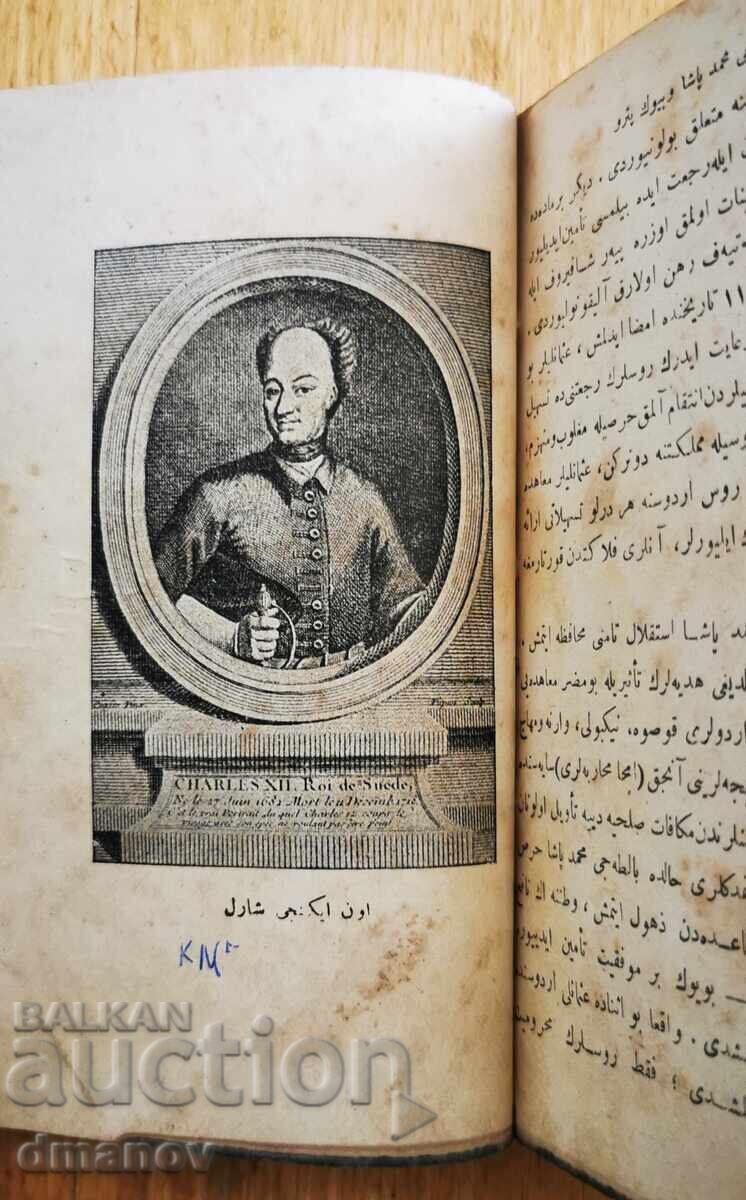 CHARLES XII. Roi de Suede,
Né le 27 Juin 1682 Mort le 11 Decemb. 1718
C'est le vrai Portrait du quel Charles 12 coupa le
visage avec son epée ne voulant pas être peint
اون ایكنجی شارل
KM
محمد پاشا وبیوك پترو
متعلق بولونیوردی . دیگر برماده‌ده
ایله رجعت ایده بیلمسی تأمین ایدیلیور
اولمق اوزره پیه‌ر شافیروف ایله
رهن اولارق آلیقونولیوردی .
تاریخنده امضا ایدلمش ، عثمانلیلر بو
رعایت ایدرك روسلرك رجعتنی‌ده تسهیل
انتقام آلمق حرصیله مغلوب ومنهزم
وسیله مملكتنه دونركن، عثمانلیلر معاهده
روس اردوسنه هر درلو تسهیلاتی ارائه
ایلیورلر، آنلری فلاكتدن قورتارمغه
پاشا استقلال تامنی محافظه ایتمش .
هدیه‌لرك تأثیریله بومضر معاهده‌یی
اردولری قوصوه، نیكبولی، وارنه ومهاج
آنجق (ایجا محاربه‌لری) سایه‌سنده
مكافات صلحیه دییه تأویل اولونان
حالده بالطه‌جی محمد پاشا حرص
ذهول ایتمش ، وطننه اك نافع
بویوك بر موفقیت تأمین ایدییوردی
. واقعا بو اثناده عثمانلی اردوسنده
؛ فقط روسلرك محرومیت
BALKAN
auction
dmanov